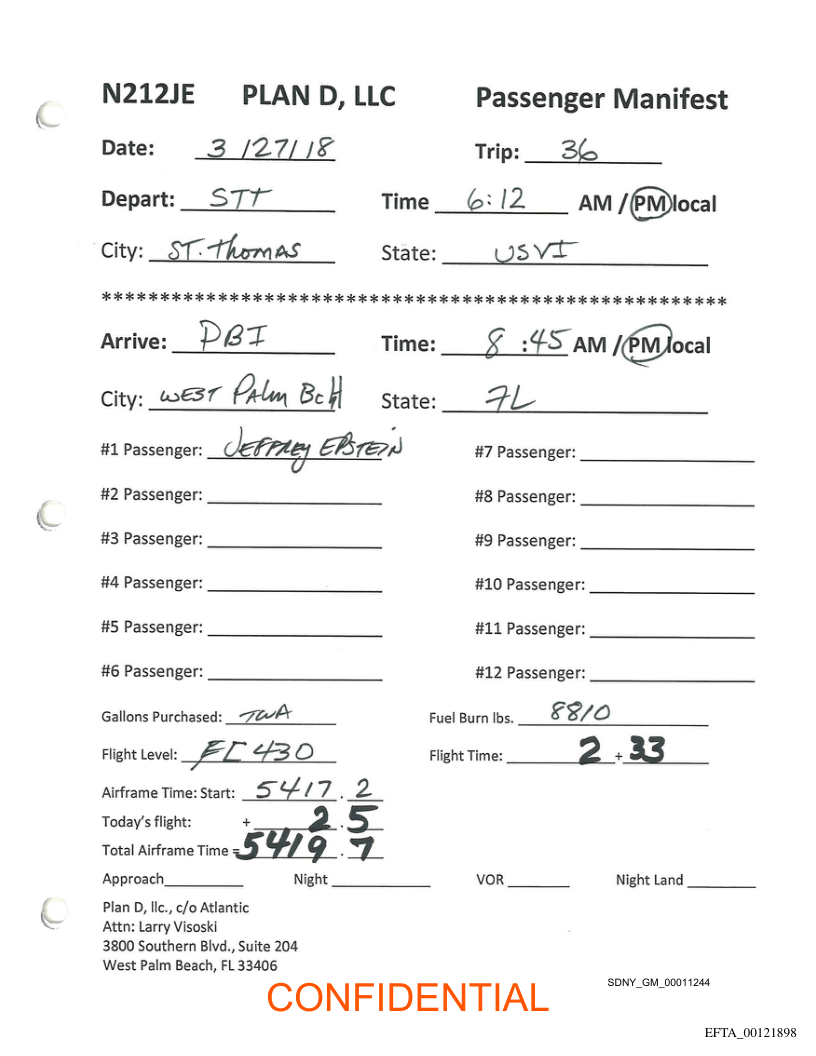 N212JE PLAN D, LLC Passenger Manifest
Date: 3/27/18 Trip: 36
Depart: STT Time 6:12 AM / PM local
City: ST. Thomas State: USVI
*****************************************************
Arrive: PBI Time: 8:45 AM / PM local
City: WEST PALM BcH State: FL
#1 Passenger: JEFFREY EPSTEIN #7 Passenger:
#2 Passenger: #8 Passenger:
#3 Passenger: #9 Passenger:
#4 Passenger: #10 Passenger:
#5 Passenger: #11 Passenger:
#6 Passenger: #12 Passenger:
Gallons Purchased: TWA Fuel Burn lbs. 8810
Flight Level: FL 430 Flight Time: 2 + 33
Airframe Time: Start: 5417.2
Today's flight: + 2.5
Total Airframe Time = 5419.7
Approach Night VOR Night Land
Plan D, llc., c/o Atlantic
Attn: Larry Visoski
3800 Southern Blvd., Suite 204
West Palm Beach, FL 33406
SDNY_GM_00011244
CONFIDENTIAL
EFTA_00121898